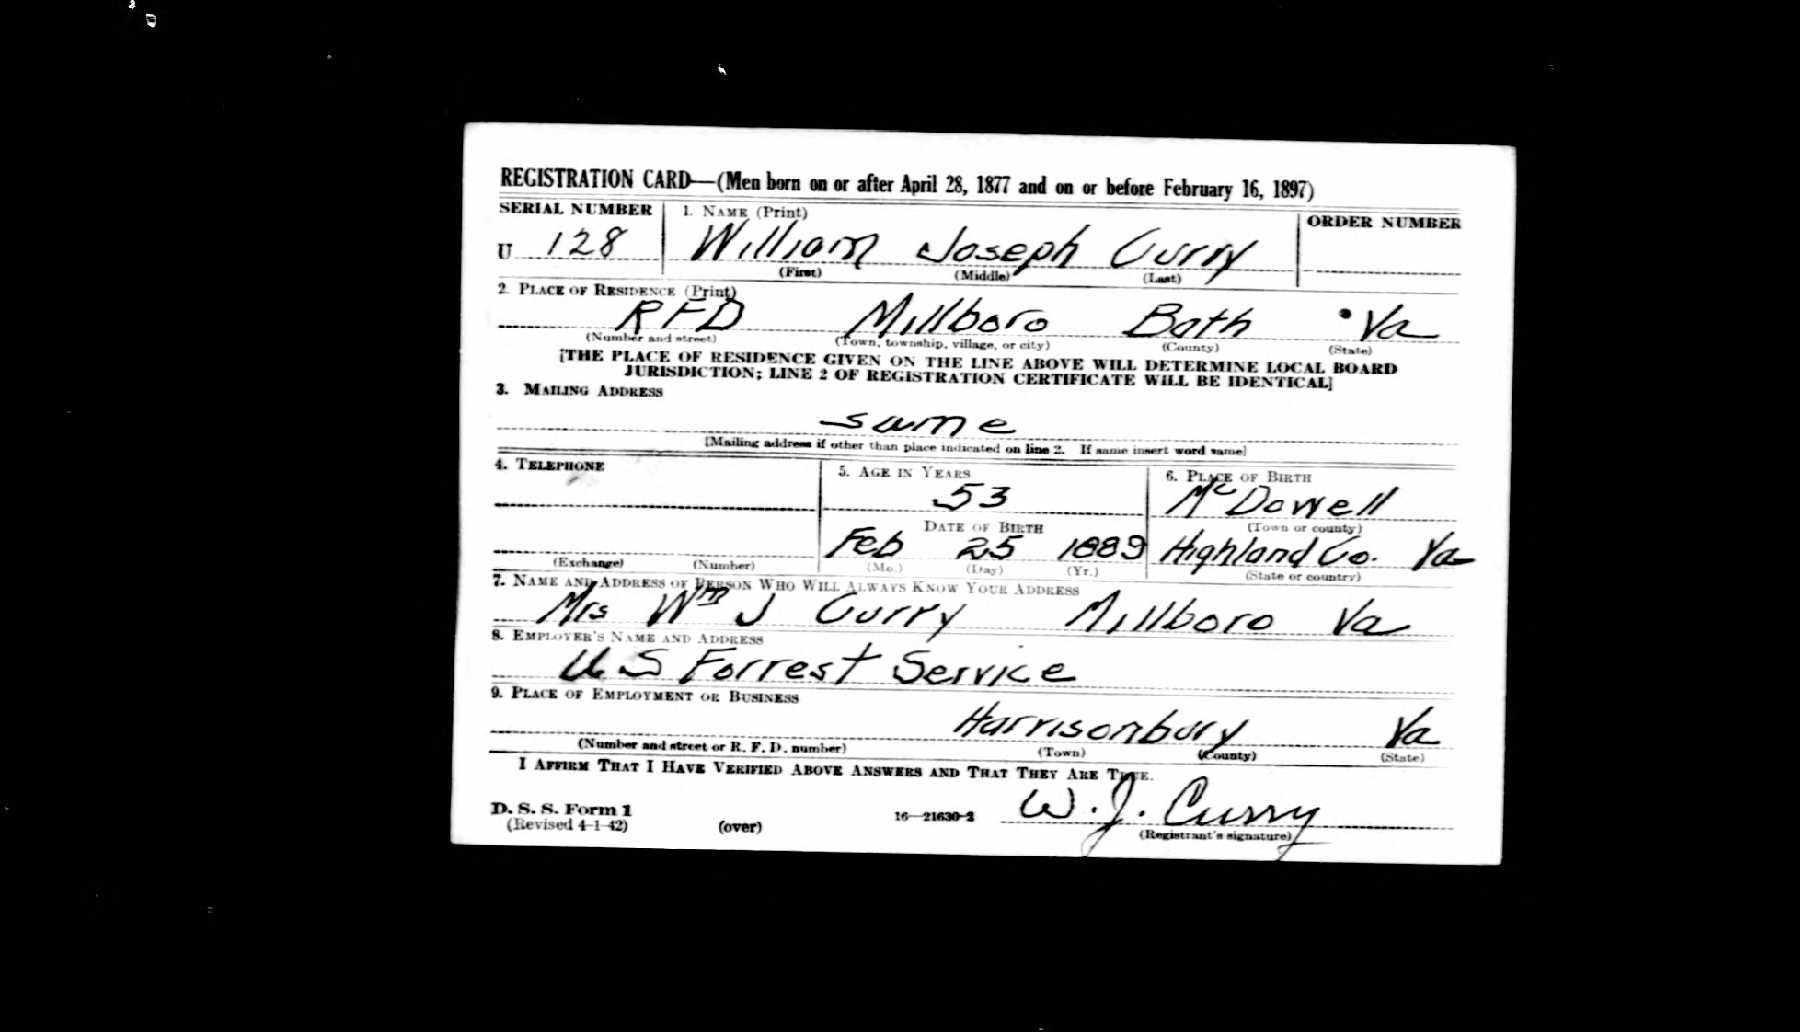 REGISTRATION CARD—(Men born on or after April 28, 1877 and on or before February 16, 1897)
SERIAL NUMBER 1. NAME (Print) ORDER NUMBER
U 128 William Joseph Curry
(First) (Middle) (Last)
2. PLACE OF RESIDENCE (Print)
RFD Millboro Bath Va
(Number and street) (Town, township, village, or city) (County) (State)
[THE PLACE OF RESIDENCE GIVEN ON THE LINE ABOVE WILL DETERMINE LOCAL BOARD
JURISDICTION; LINE 2 OF REGISTRATION CERTIFICATE WILL BE IDENTICAL]
3. MAILING ADDRESS
same
[Mailing address if other than place indicated on line 2. If same insert word same]
4. TELEPHONE 5. AGE IN YEARS 6. PLACE OF BIRTH
53 McDowell
DATE OF BIRTH (Town or county)
Feb 25 1889 Highland Co. Va
(Exchange) (Number) (Mo.) (Day) (Yr.) (State or country)
7. NAME AND ADDRESS OF PERSON WHO WILL ALWAYS KNOW YOUR ADDRESS
Mrs Wm J Curry Millboro Va
8. EMPLOYER'S NAME AND ADDRESS
U S Forrest Service
9. PLACE OF EMPLOYMENT OR BUSINESS
Harrisonburg Va
(Number and street or R. F. D. number) (Town) (County) (State)
I AFFIRM THAT I HAVE VERIFIED ABOVE ANSWERS AND THAT THEY ARE TRUE.
W. J. Curry
D. S. S. Form 1
(Revised 4-1-42) (over) 16—21630-2 (Registrant's signature)